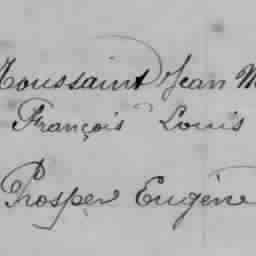 Toussaint Jean M
François Louis
Prosper Eugène